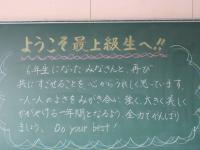 ようこそ最上級生へ!!
6年生になったみなさんと、再び
共にすごせることを心からうれしく思っています。
一人一人のよさをみがき合い、強く、大きく美しく
かがやける一年間となるよう、全力でがんばり
ましょう。 Do your best!